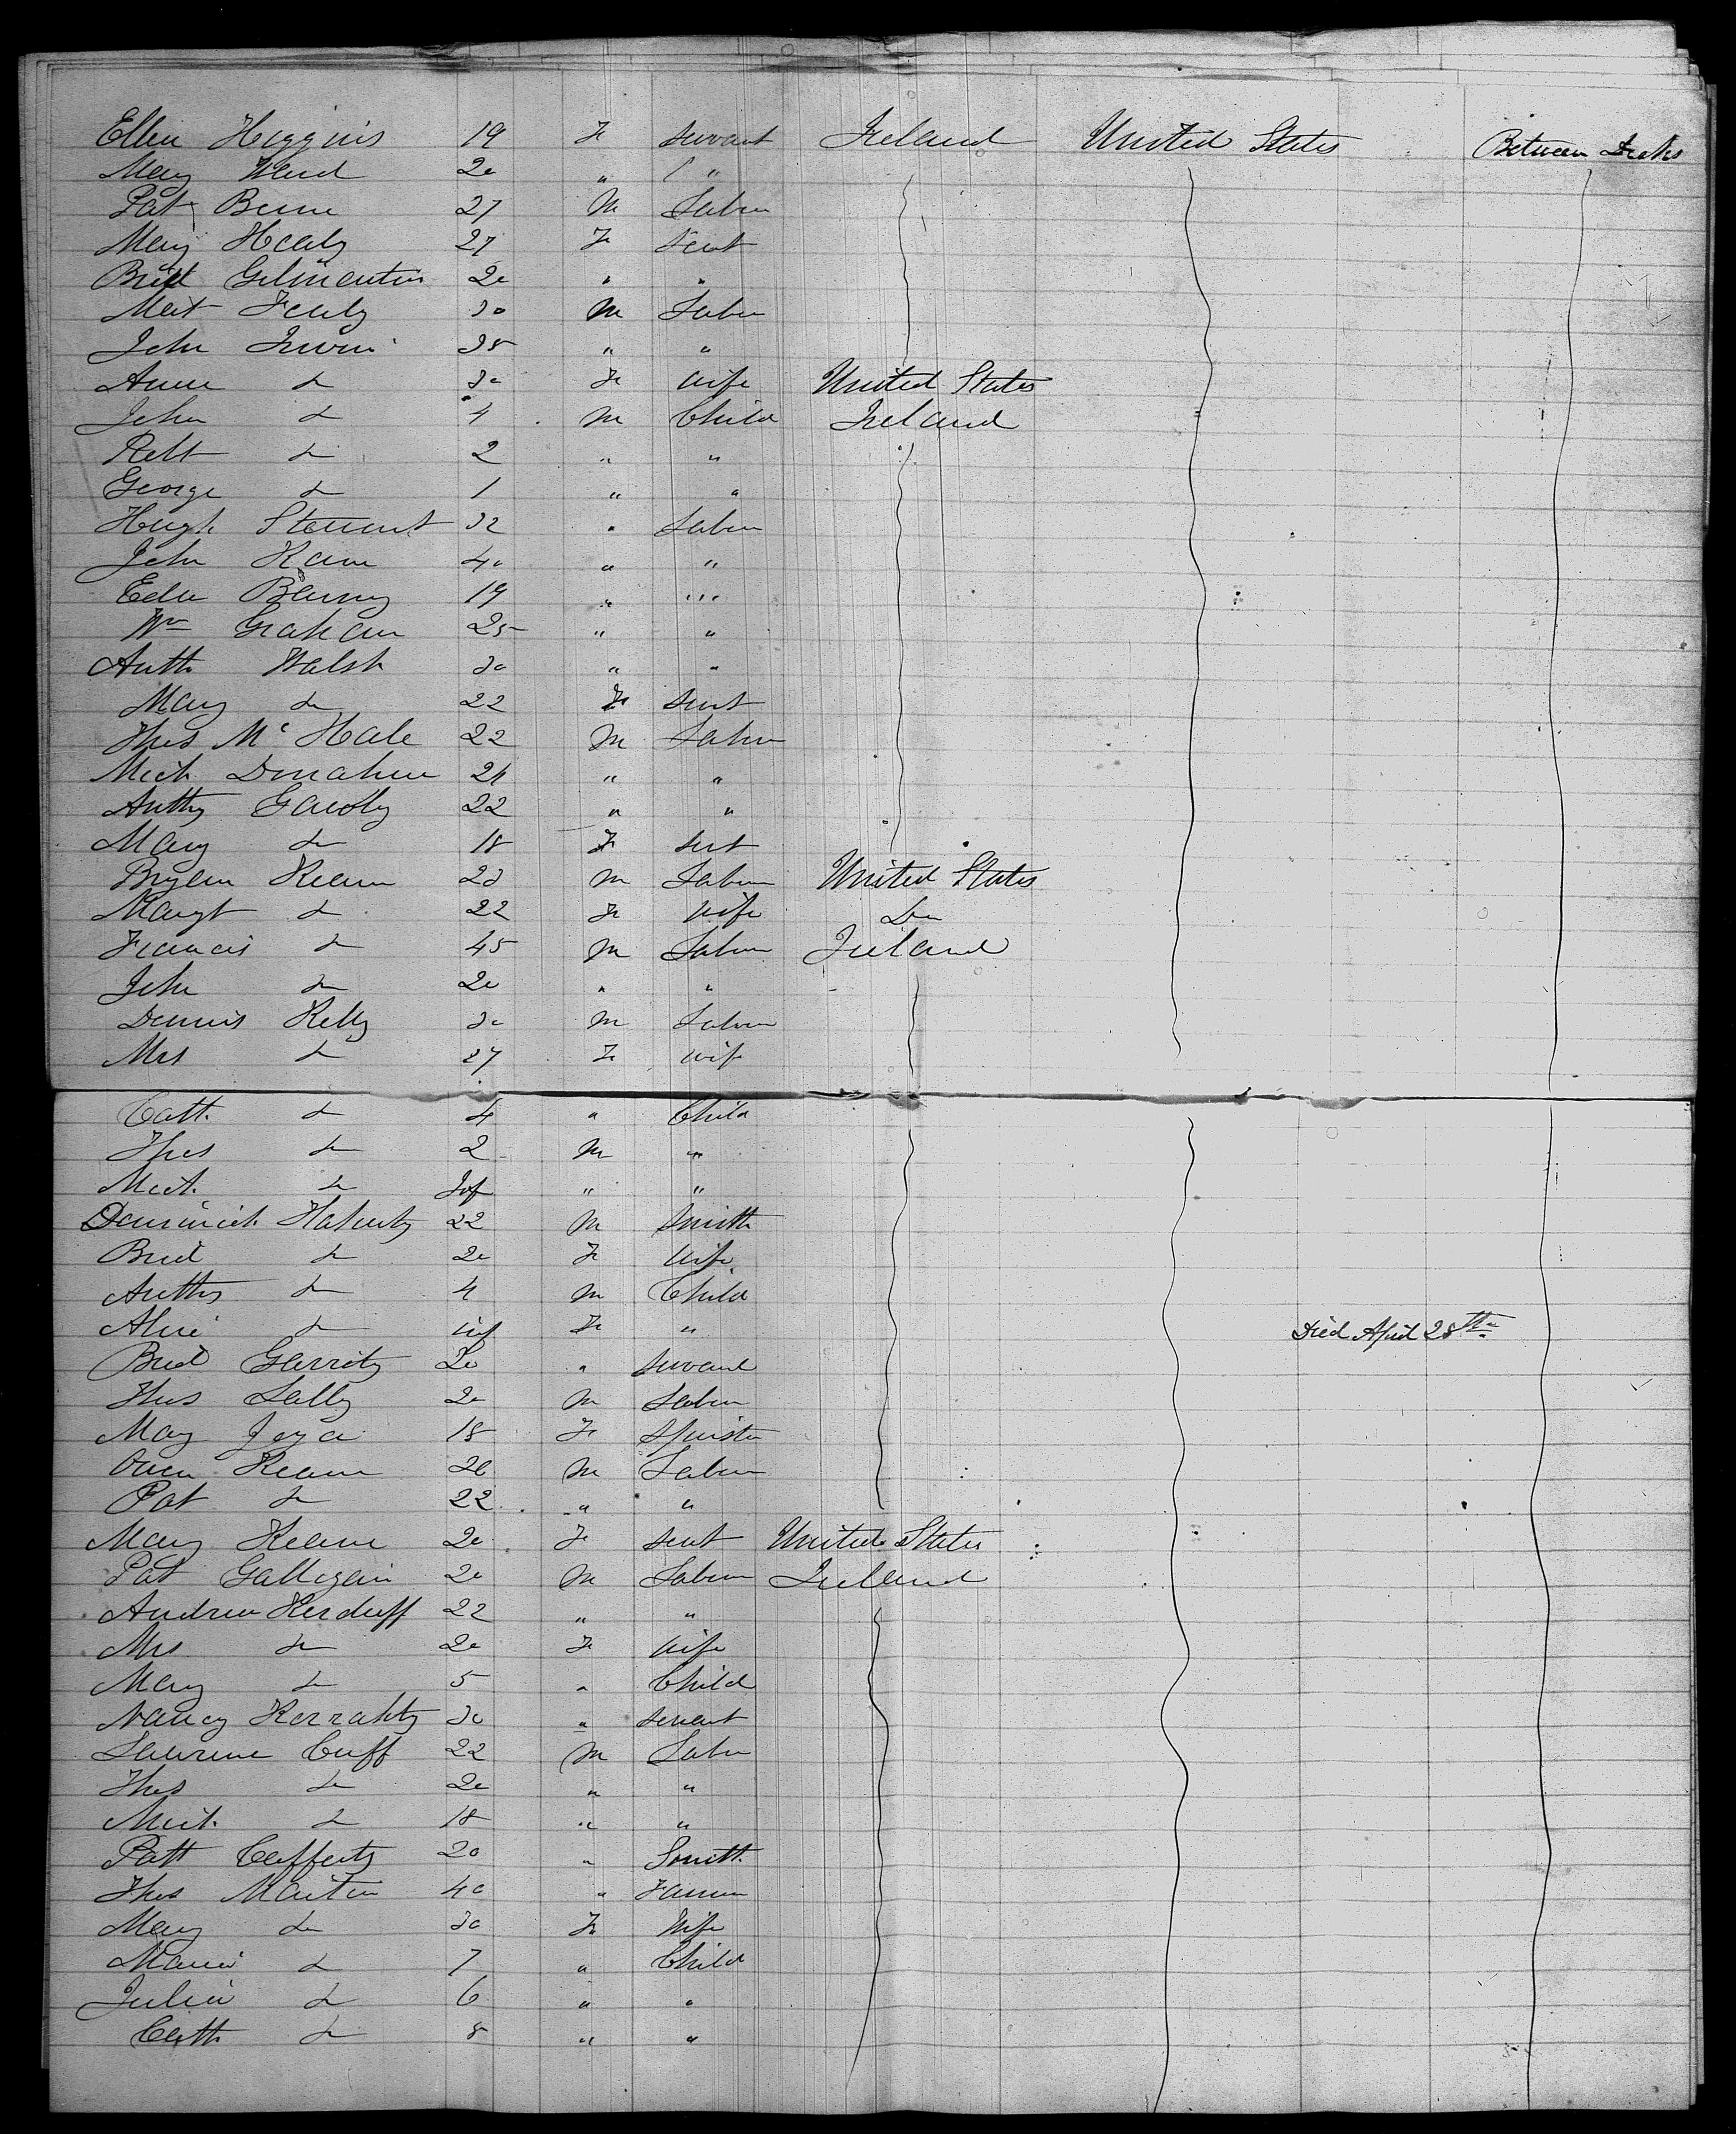 Ellen Higgins 19 F servant Ireland United States Between Decks
Mary Ward 20 " "
Pat Burne 27 M Labr
Mary Healy 27 F Servt
Brid 20 " "
Mat Fealy 30 M Labr
John Irwin 35 " "
Anne do 30 F wife United States
John do 4 M Child Ireland
Robt do 2 " "
George do 1 " "
Hugh Stewart 32 " Labr
John Kane 40 " "
Edw 19 " "
Wm Graham 25 " "
Anth Walsh 30 " "
Mary do 22 F Servt
Thos McHale 22 M Labr
Mich Donahue 24 " "
Anthy 22 " "
Mary do 18 F Servt
Bryan Keane 23 M Labr United States
Margt do 22 F wife Do
Francis do 45 M Labr Ireland
John do 20 " "
Dennis Kelly 30 M Labr
Mrs do 27 F wife
Cath do 4 " Child
Thos do 2 M "
Mich do Inf " "
Dominick Flaherty 22 M Smith
Brid do 20 F Wife
Anthy do 4 M Child
Alice do inf F " Died April 28th
Brid Garrity 20 " servant
Thos Lally 20 M Labr
Mary Joyce 18 F Spinster
Owen Keane 26 M Labr
Pat do 22 " "
Mary Keane 20 F Servt United States
Pat Galligan 20 M Labr Ireland
Andrew Kerduff 22 " "
Mrs do 20 F Wife
Mary do 5 " Child
Nancy Kerrahty 30 " Servant
Laurence Cuff 22 M Labr
Thos do 20 " "
Mich do 18 " "
Patt Cafferty 20 " Smith
Thos Martin 40 " Farmer
Mary do 30 F Wife
Maria do 7 " Child
Julia do 6 " "
Cath do 8 " "